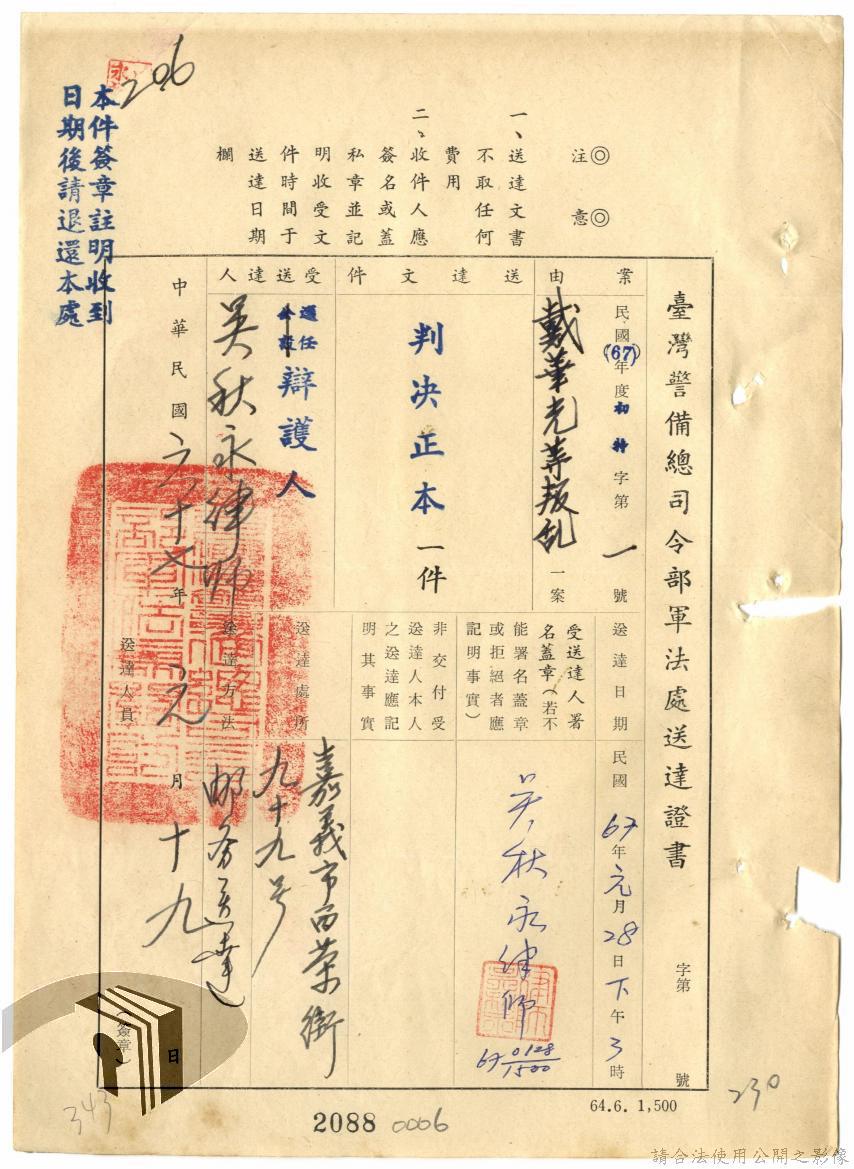 206
永
本件簽章註明收到
日期後請退還本處
◎注意◎
一、送達文書
不取任何
費用
二、收件人應
簽名或蓋
私章並記
明收受文
件時間于
送達日期
欄
臺灣警備總司令部軍法處送達證書
字第 號
案由
民國(67)年度初特字第一號
戴華光等叛乱一案
送達文件
判决正本一件
受送達人
選任
辯護人
吳秋永律師
送達日期
民國67年元月28日下午3時
受送達人署
名蓋章(若不
能署名蓋章
或拒絕者應
記明事實)
吳秋永律師
67 0128/1500
非交付受
送達人本人
之送達應記
明其事實
送達處所
嘉義市西榮街
九十九号
送達方法
邮务送達
中華民國六十七年元月十九日
送達人員
(簽章)
343
2088 0006
64.6. 1,500
230
請合法使用公開之影像